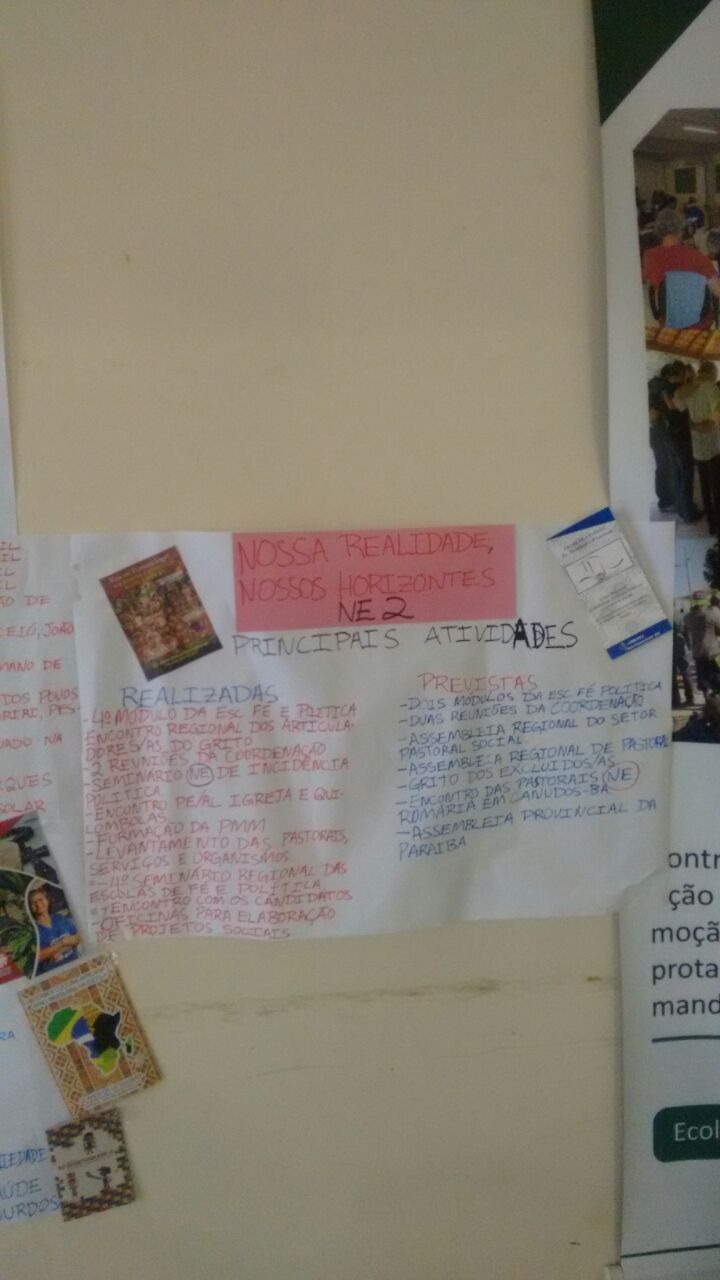 NOSSA REALIDADE,
NOSSOS HORIZONTES
NE 2
PRINCIPAIS ATIVIDADES
REALIZADAS
- 4º MÓDULO DA ESC FÉ E PLITICA
ENCONTRO REGIONAL DOS ARTICULA-
DORES/AS DO GRITO
REUNIÕES DA COORDENAÇÃO
- SEMINÁRIO NE DE INCIDÊNCIA
POLÍTICA
- ENCONTRO PE/AL IGREJA E QUI-
LOMBOLAS
- FORMAÇÃO DA PMM
- LEVANTAMENTO DAS PASTORAIS,
SERVIÇOS E ORGANISMOS
- 4º SEMINÁRIO REGIONAL DAS
ESCOLAS DE FÉ E POLÍTICA
ENCONTRO COM OS CANDIDATOS
- OFICINAS PARA ELABORAÇÃO
DE PROJETOS SOCIAIS
PREVISTAS
- DOIS MÓDULOS DA ESC FÉ POLÍTICA
- DUAS REUNIÕES DA COORDENAÇÃO
- ASSEMBLEIA REGIONAL DO SETOR
PASTORAL SOCIAL.
- ASSEMBLEIA REGIONAL DE PASTORAL
- GRITO DOS EXCLUIDOS/AS
- ENCONTRO DAS PASTORAIS NE
ROMARIA EM CANUDOS-BA
- ASSEMBLEIA PROVINCIAL DA
PARAIBA
IL
IL
IL
IL
ÃO DE
CEIÓ, JOÃO
MANO DE
DOS POVOS
RIRI, PES-
VADO NA
RQUES
SOLAR
RA
IEDADE
AÚDE
SURDOS
ontr
ção
moçã
prota
mand
Ecol